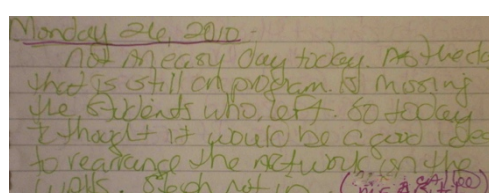 Monday 26, 2010.
not an easy day today. As the
that is still on program. is missing
the students who left. So today
I thought it would be a good idea
to rearrange the artwork on the
walls. not in